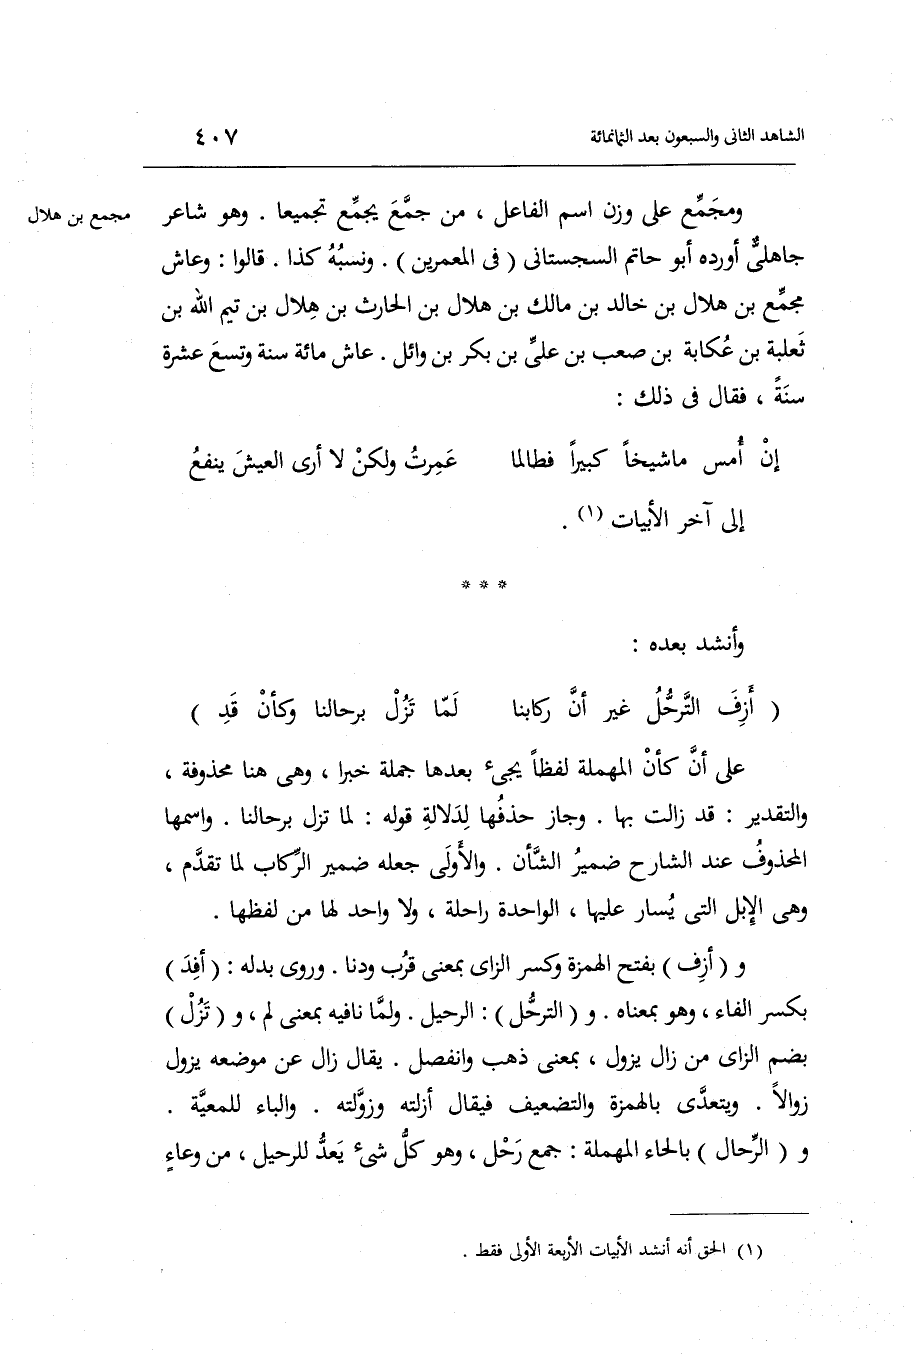 الشاهد الثانى والسبعون بعد الثمانمائة ٤٠٧
ومجَمِّع على وزن اسم الفاعل ، من جمَّعَ يجمِّع تجميعا . وهو شاعر
مجمع بن هلال
جاهلىٌّ أورده أبو حاتم السجستانى ( فى المعمرين ) . ونسبُهُ كذا . قالوا : وعاش
مجمِّع بن هلال بن خالد بن مالك بن هلال بن الحارث بن هِلال بن تيم الله بن
ثَعلبة بن عُكابة بن صعب بن علىِّ بن بكر بن وائل . عاش مائة سنة وتسعَ عشرة
سنَةً ، فقال فى ذلك :
إنْ أُمس ماشيخاً كبيراً فطالما عَمِرتُ ولكنْ لا أرى العيشَ ينفعُ
إلى آخر الأبيات (١) .
* * *
وأنشد بعده :
( أَزِفَ التَّرحُّلُ غير أنَّ ركابنا لَمّا تَزُلْ برحالنا وكأنْ قَدِ )
على أنَّ كأنْ المهملة لفظاً يجىء بعدها جملة خبرا ، وهى هنا محذوفة ،
والتقدير : قد زالت بها . وجاز حذفُها لِدَلالةِ قوله : لما تزل برحالنا . واسمها
المحذوفُ عند الشارح ضميرُ الشَّأن . والأَولَى جعله ضمير الرِّكاب لما تقدَّم ،
وهى الإبل التى يُسار عليها ، الواحدة راحلة ، ولا واحد لها من لفظها .
و ( أزِف ) بفتح الهمزة وكسر الزاى بمعنى قرُب ودنا . وروى بدله : ( أفِدَ )
بكسر الفاء ، وهو بمعناه . و ( الترحُّل ) : الرحيل . ولمَّا نافيه بمعنى لم ، و ( تَزُلْ )
بضم الزاى من زال يزول ، بمعنى ذهب وانفصل . يقال زال عن موضعه يزول
زوالاً . ويتعدَّى بالهمزة والتضعيف فيقال أزلته وزوَّلته . والباء للمعيَّة .
و ( الرِّحال ) بالحاء المهملة : جمع رَحْل ، وهو كلُّ شىء يَعدُّ للرحيل ، من وعاءٍ
(١) الحق أنه أنشد الأبيات الأربعة الأولى فقط .